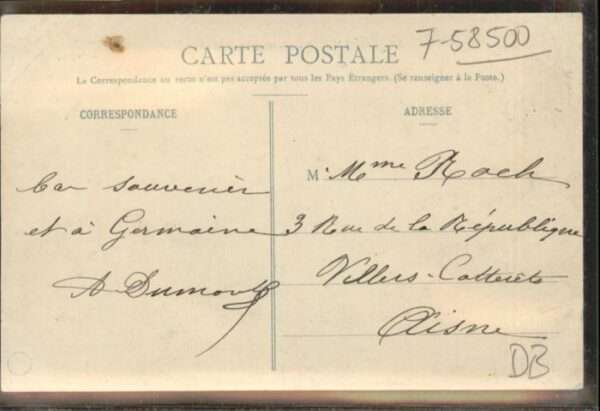 7-58500
CARTE POSTALE
La Correspondance au recto n'est pas acceptée par tous les Pays Étrangers. (Se renseigner à la Poste.)
CORRESPONDANCE
Bon souvenir
et à Germaine
A Dumont
ADRESSE
M Mme Roch
3 Rue de la République
Villers-Cotterêts
Aisne
DB